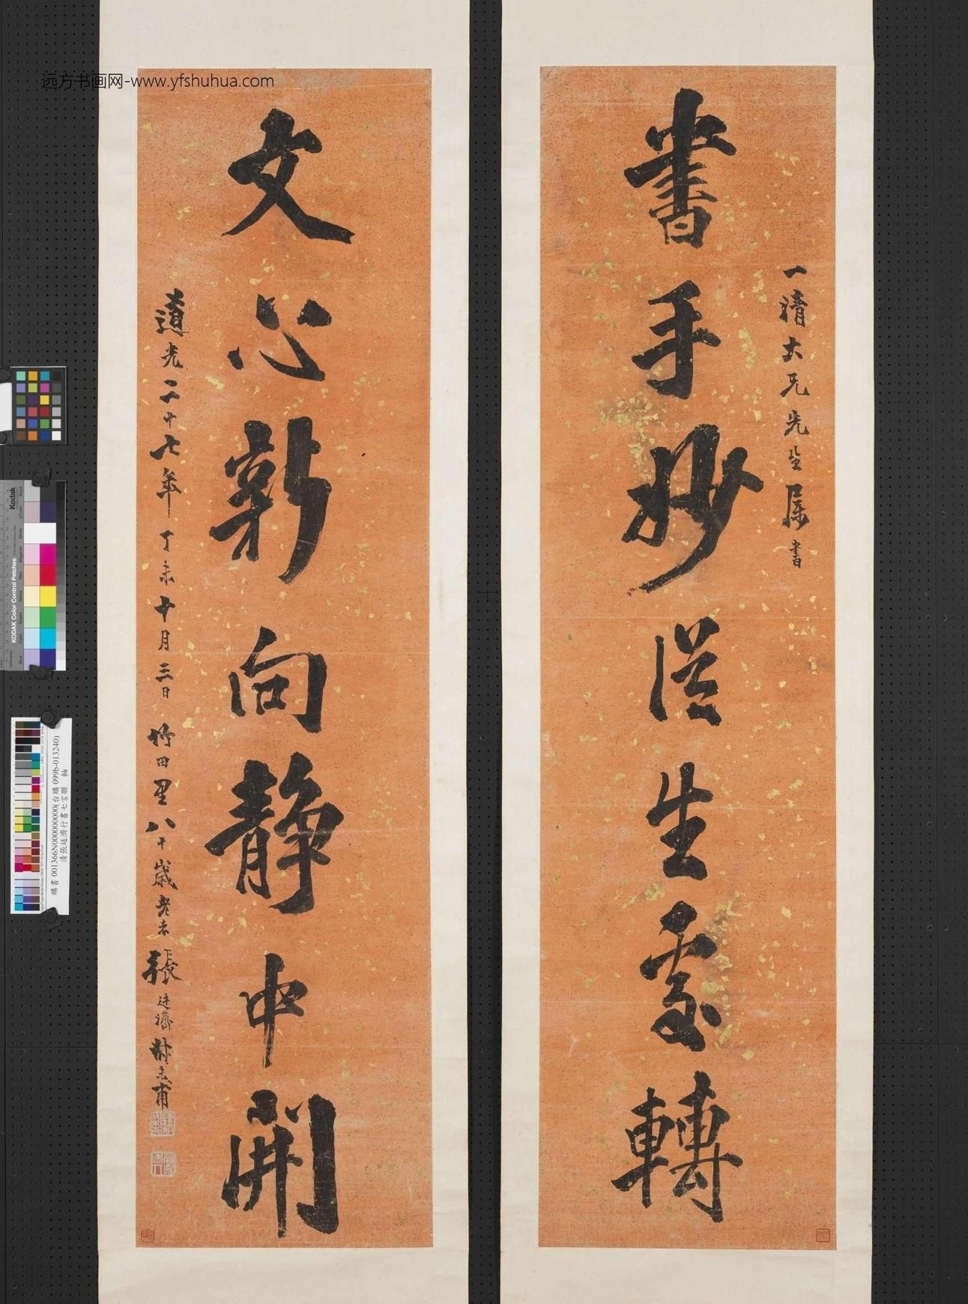 远方书画网-www.yfshuhua.com
書手妙從生處轉
一清大兄先生屬書
文心新向靜中開
道光二十七年丁未十月三日竹田里八十歲老者張廷濟叔未甫
Kodak
KODAK Color Control Patches
購書 001366N000000000(台購 099b-013240)
清張廷濟行書七言聯 軸